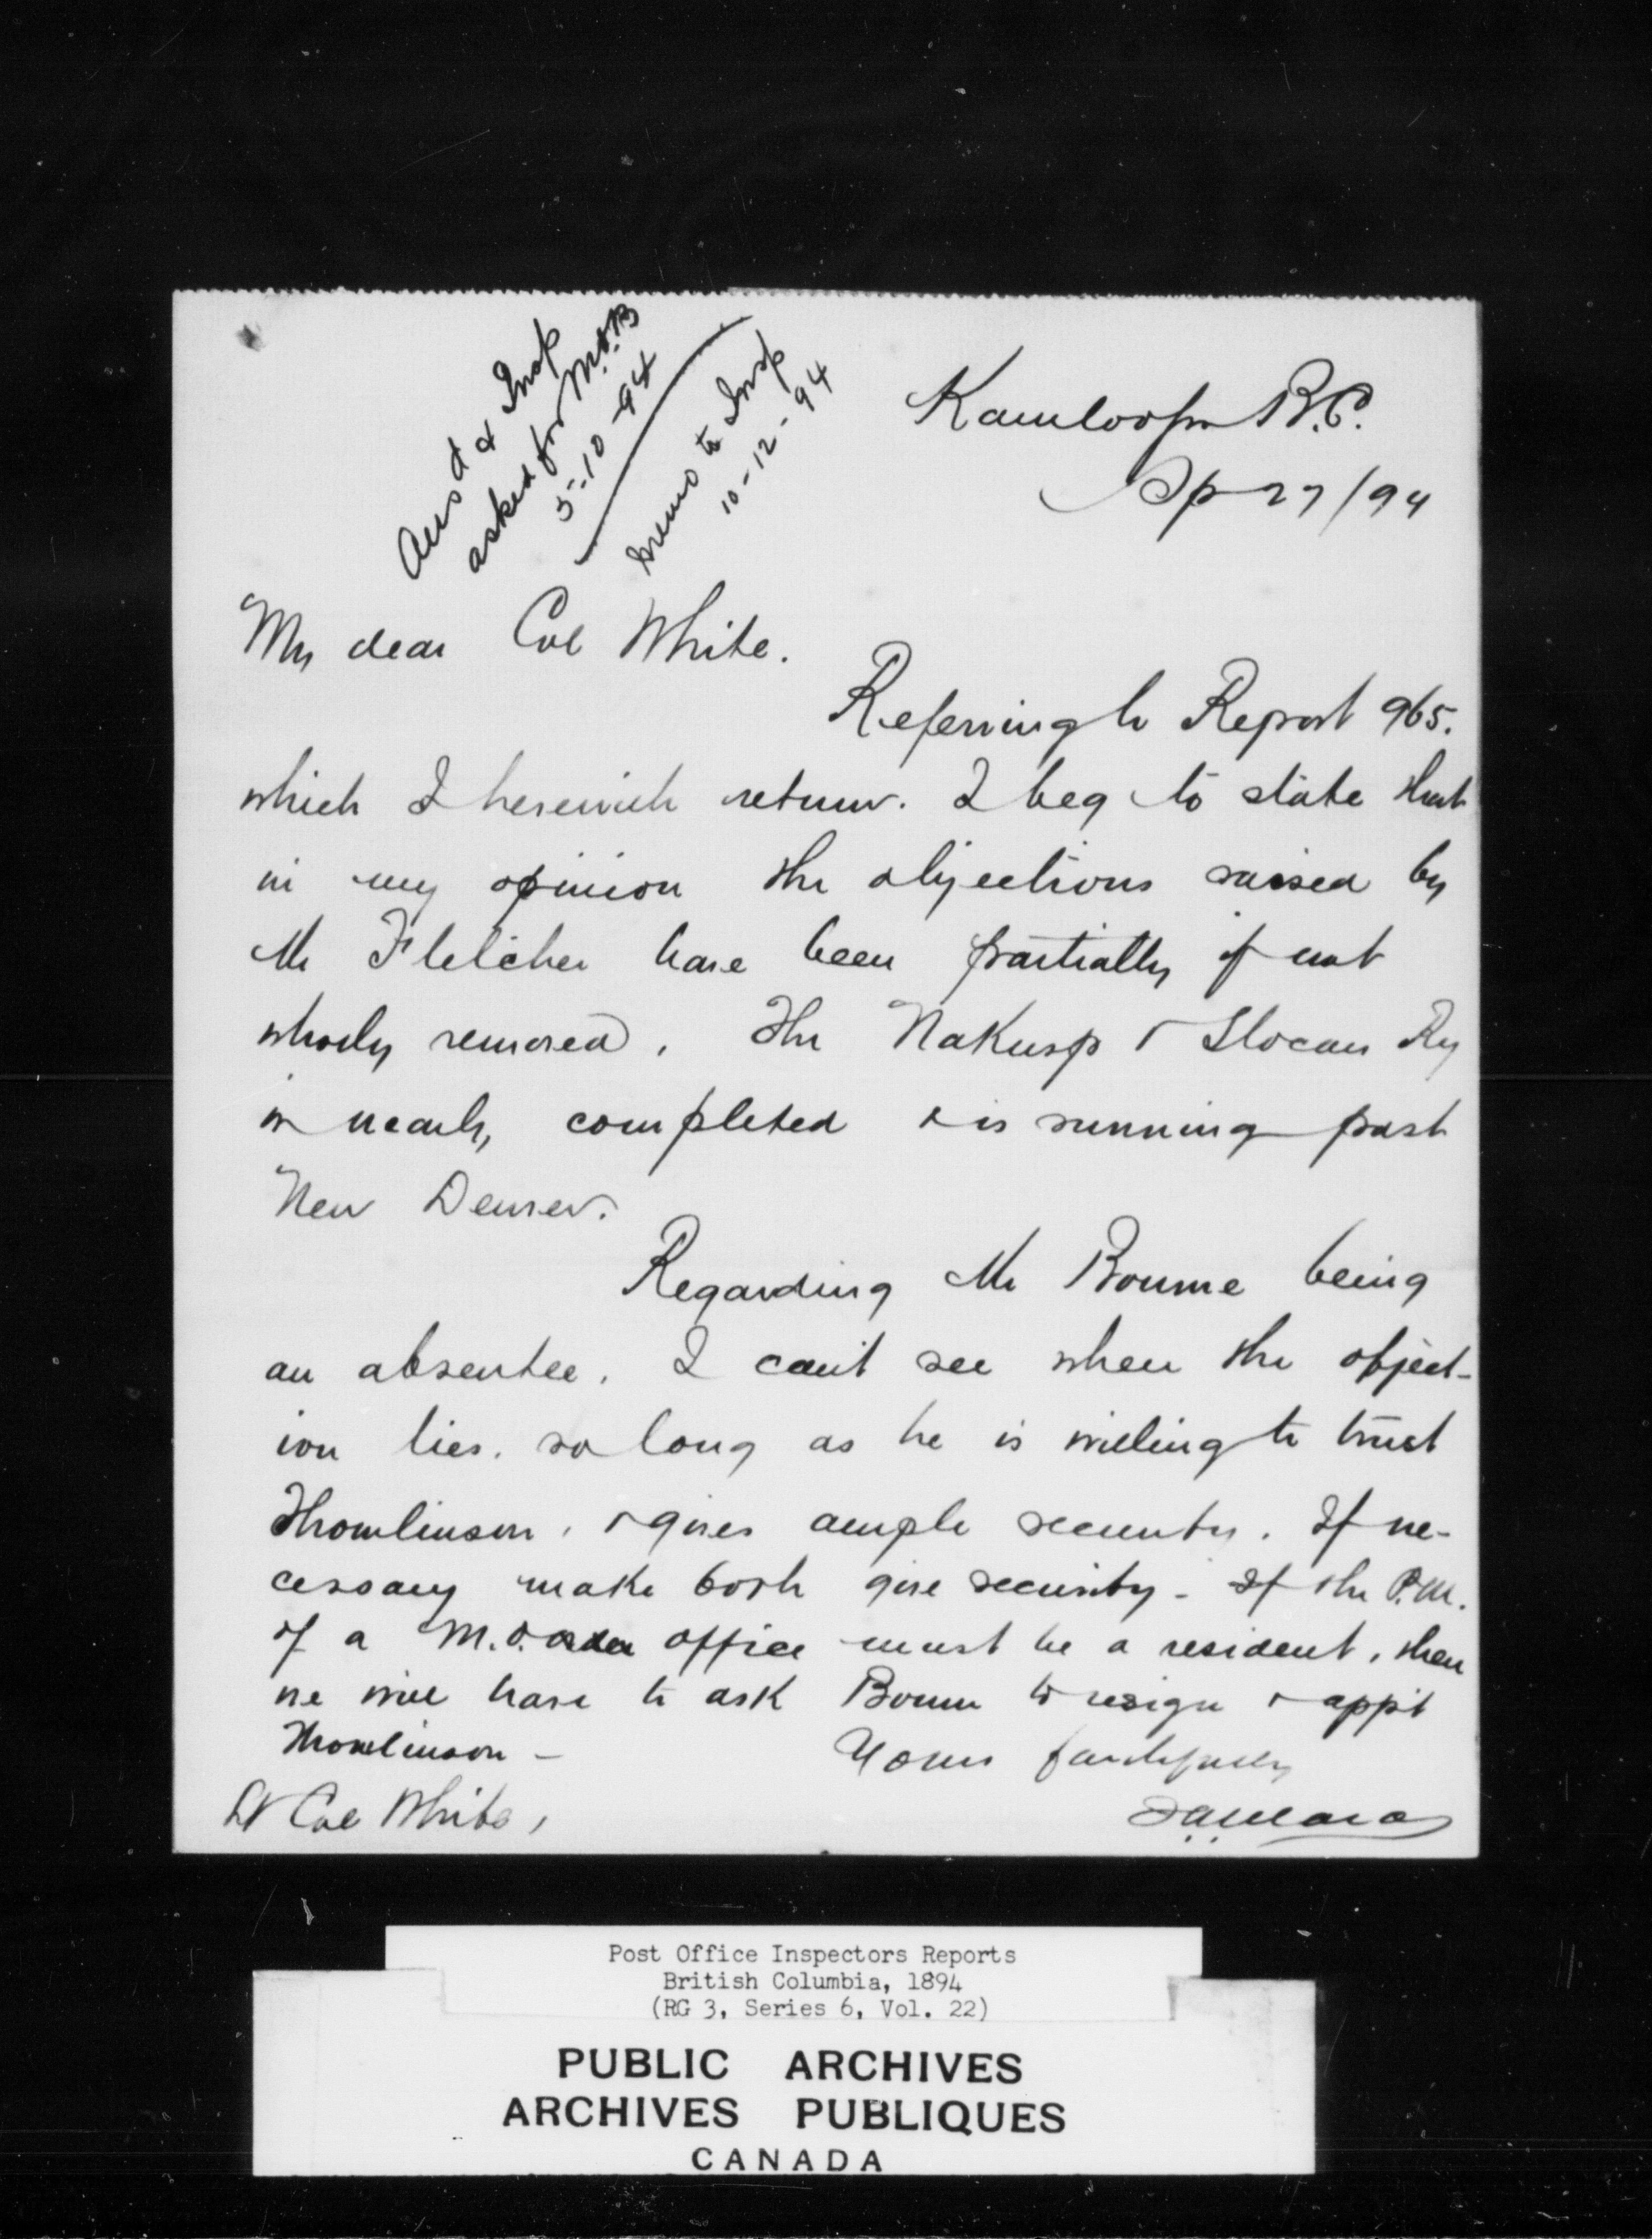 Ansd & Insp
asked for M.O.B
5-10-94
Memo to Insp
10-12-94
Kamloops B.C.
Sp 27/94
My dear Col White.
Referring to Report 965.
which I herewith return. I beg to state that
in my opinion the objections raised by
Mr Fletcher have been partially if not
wholly removed. The Nakusp & Slocan Ry
is nearly completed & is running past
New Denver.
Regarding Mr Bourne being
an absentee. I can't see where the object-
ion lies. so long as he is willing to trust
Thomlinson, & gives ample security. If ne-
cessary make both give security - If the P.M.
of a M.O. Order office must be a resident, then
we will have to ask Bourne to resign & appt
Thomlinson -
Yours faithfully
Lt Col White,
J A Mara
Post Office Inspectors Reports
British Columbia, 1894
(RG 3, Series 6, Vol. 22)
PUBLIC ARCHIVES
ARCHIVES PUBLIQUES
CANADA